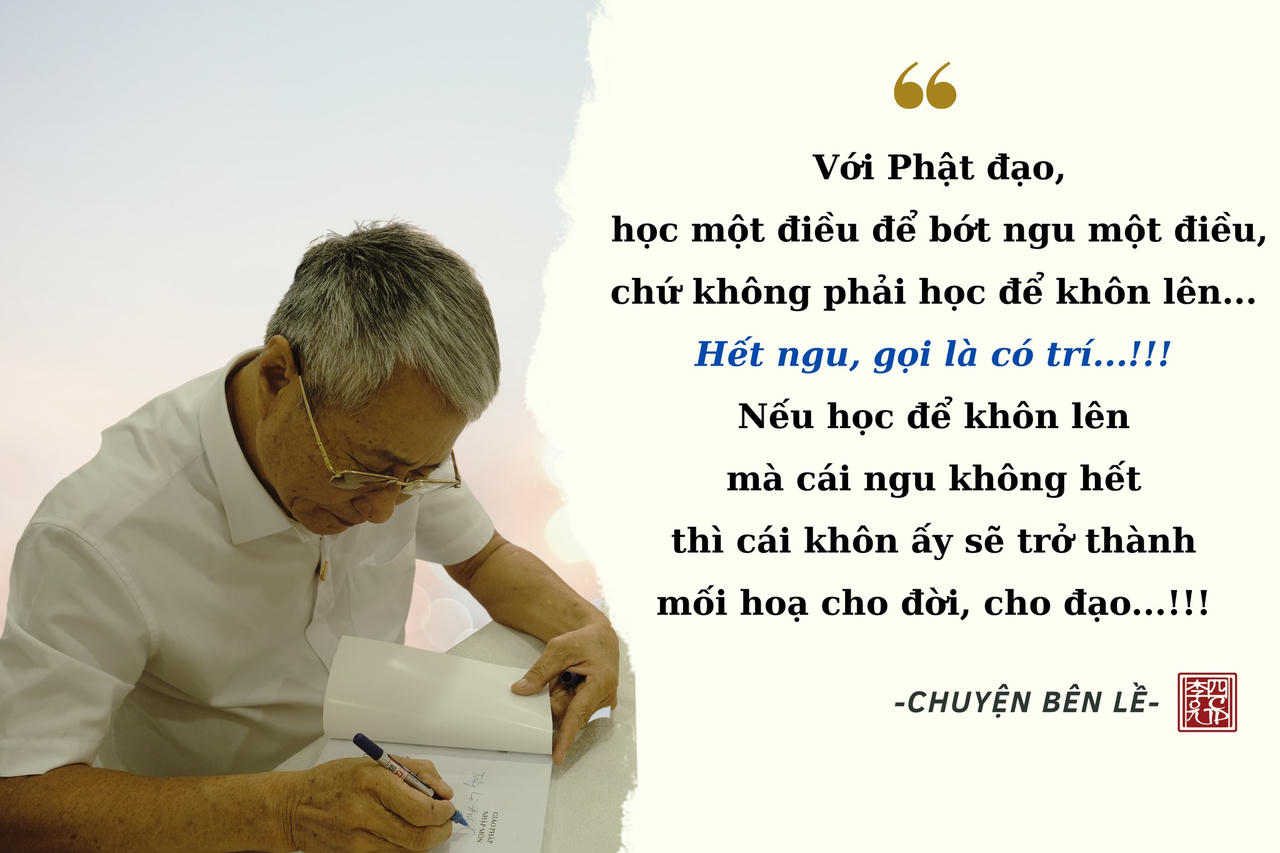 Với Phật đạo,
học một điều để bớt ngu một điều,
chứ không phải học để khôn lên...
Hết ngu, gọi là có trí...!!!
Nếu học để khôn lên
mà cái ngu không hết
thì cái khôn ấy sẽ trở thành
mối hoạ cho đời, cho đạo...!!!
-CHUYỆN BÊN LỀ-
GIÁO PHÁP
NHẬP MÔN